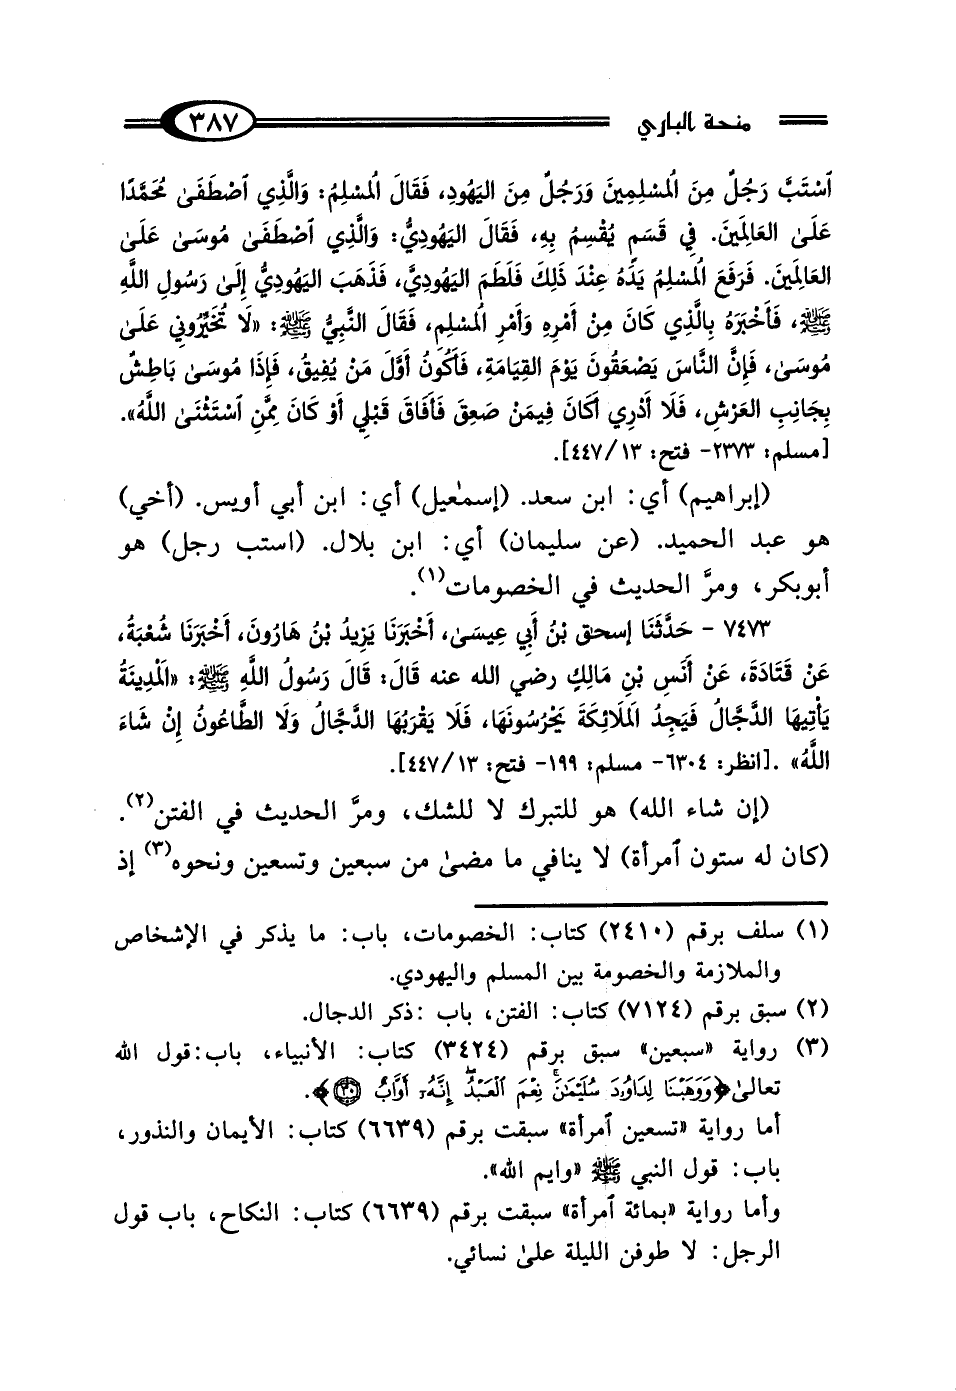 منحة الباري
٣٨٧
ٱسْتَبَّ رَجُلٌ مِنَ الُمسْلِمِينَ وَرَجُلٌ مِنَ اليَهُودِ، فَقَالَ الُمسْلِمُ: وَالَّذِي ٱصْطَفَىٰ مُحَمَّدًا
عَلَىٰ العَالَمِينَ. فِي قَسَمٍ يُقْسِمُ بِهِ، فَقَالَ اليَهُودِيُّ: وَالَّذِي ٱصْطَفَىٰ مُوسَىٰ عَلَىٰ
العَالَمِينَ. فَرَفَعَ الُمسْلِمُ يَدَهُ عِنْدَ ذَلِكَ فَلَطَمَ اليَهُودِيَّ، فَذَهَبَ اليَهُودِيُّ إِلَىٰ رَسُولِ اللَّهِ
ﷺ، فَأَخْبَرَهُ بِالَّذِي كَانَ مِنْ أَمْرِهِ وَأَمْرِ الُمسْلِمِ، فَقَالَ النَّبِيُّ ﷺ: «لَا تُخَيِّرُونِي عَلَىٰ
مُوسَىٰ، فَإِنَّ النَّاسَ يَصْعَقُونَ يَوْمَ القِيَامَةِ، فَأَكُونُ أَوَّلَ مَنْ يُفِيقُ، فَإِذَا مُوسَىٰ بَاطِشٌ
بِجَانِبِ العَرْشِ، فَلَا أَدْرِي أَكَانَ فِيمَنْ صَعِقَ فَأَفَاقَ قَبْلِي أَوْ كَانَ مِمَّنِ ٱسْتَثْنَىٰ اللَّهُ».
[مسلم: ٢٣٧٣- فتح: ١٣/ ٤٤٧].
(إبراهيم) أي: ابن سعد. (إسمٰعيل) أي: ابن أبي أويس. (أخي)
هو عبد الحميد. (عن سليمان) أي: ابن بلال. (استب رجل) هو
أبوبكر، ومرَّ الحديث في الخصومات(١).
٧٤٧٣ - حَدَّثَنَا إسحٰق بْنُ أَبِي عِيسَىٰ، أَخْبَرَنَا يَزِيدُ بْنُ هَارُونَ، أَخْبَرَنَا شُعْبَةُ،
عَنْ قَتَادَةَ، عَنْ أَنَسِ بْنِ مَالِكٍ رضي الله عنه قَالَ: قَالَ رَسُولُ اللَّهِ ﷺ: «الَمدِينَةُ
يَأْتِيهَا الدَّجَّالُ فَيَجِدُ الَملَائِكَةَ يَحْرُسُونَهَا، فَلَا يَقْرَبُهَا الدَّجَّالُ وَلَا الطَّاعُونُ إِنْ شَاءَ
اللَّهُ» .[انظر: ٦٣٠٤- مسلم: ١٩٩- فتح: ١٣/ ٤٤٧].
(إن شاء الله) هو للتبرك لا للشك، ومرَّ الحديث في الفتن(٢).
(كان له ستون ٱمرأة) لا ينافي ما مضىٰ من سبعين وتسعين ونحوه(٣) إذ
(١) سلف برقم (٢٤١٠) كتاب: الخصومات، باب: ما يذكر في الإشخاص
والملازمة والخصومة بين المسلم واليهودي.
(٢) سبق برقم (٧١٢٤) كتاب: الفتن، باب :ذكر الدجال.
(٣) رواية «سبعين» سبق برقم (٣٤٢٤) كتاب: الأنبياء، باب:قول الله
تعالىٰ﴿وَوَهَبْنَا لِدَاوُۥدَ سُلَيْمَٰنَۚ نِعْمَ ٱلْعَبْدُۖ إِنَّهُۥٓ أَوَّابٌ ٣٠﴾.
أما رواية «تسعين ٱمرأة» سبقت برقم (٦٦٣٩) كتاب: الأيمان والنذور،
باب: قول النبي ﷺ «وايم الله».
وأما رواية «بمائة ٱمرأة» سبقت برقم (٦٦٣٩) كتاب: النكاح، باب قول
الرجل: لا طوفن الليلة علىٰ نسائي.